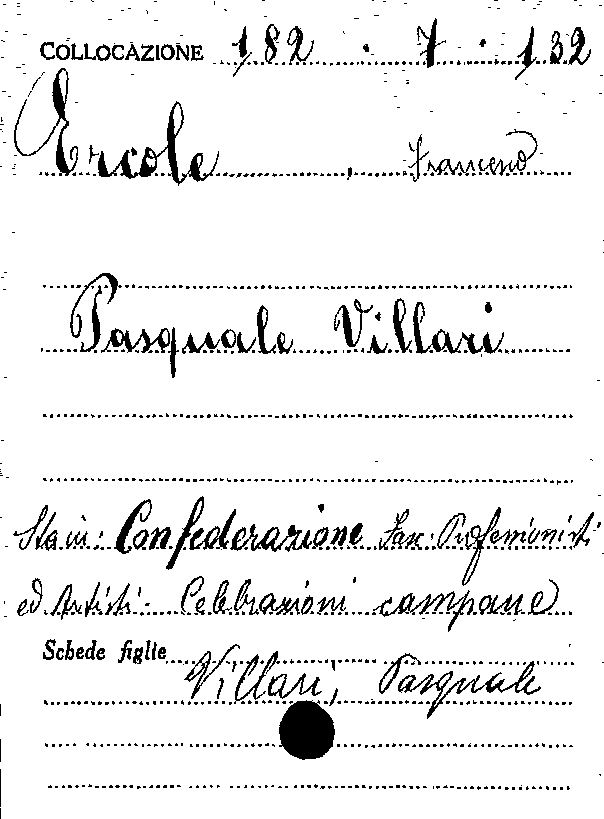 COLLOCAZIONE 182 . 7 . 132
Ercole , Francesco
Pasquale Villari
Sta in: Confederazione Fasc. Professionisti
ed Artisti. Celebrazioni campane
Schede figlie
Villari, Pasquale